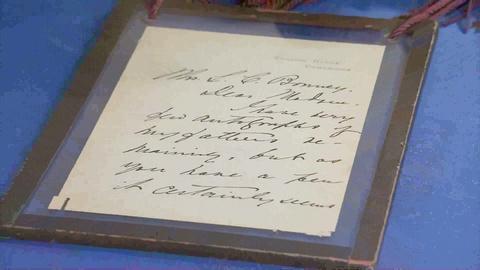 Mrs. L. C. Bonney,
Dear Madam.
I have very
few autographs of
my father's re-
maining, but as
you have a pen
it certainly seems